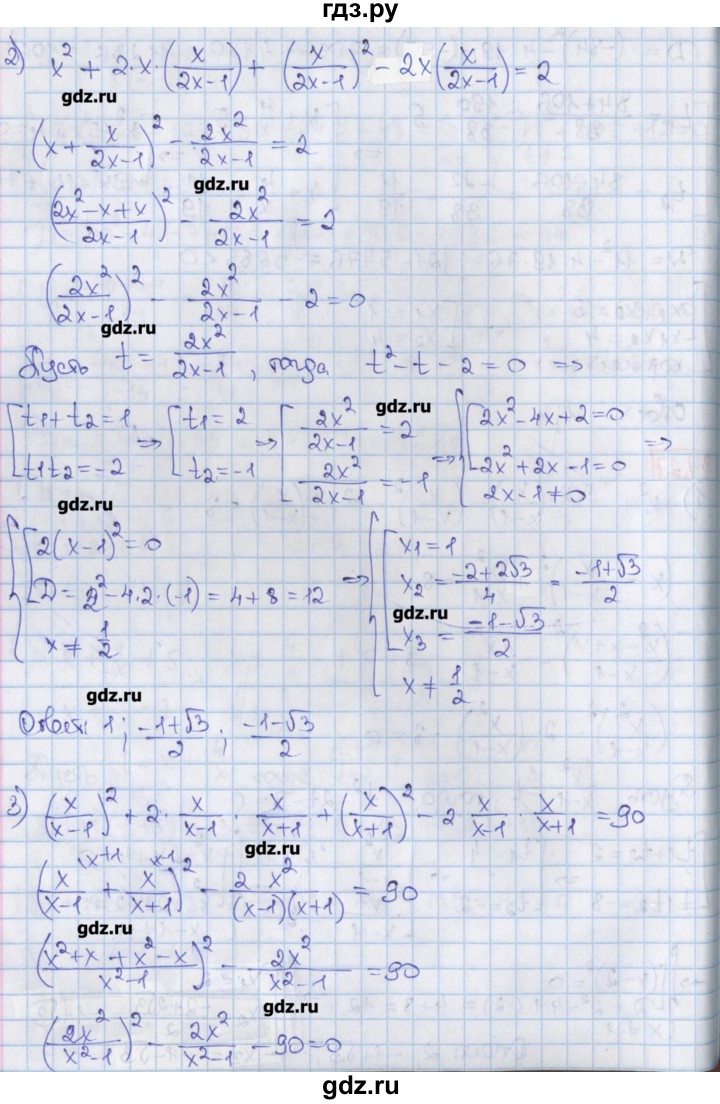 гдз.ру
2) x² + 2·x·(x/(2x-1)) + (x/(2x-1))² - 2x(x/(2x-1)) = 2
gdz.ru
(x + x/(2x-1))² - 2x²/(2x-1) = 2
gdz.ru
((2x²-x+x)/(2x-1))² - 2x²/(2x-1) = 2
(2x²/(2x-1))² - 2x²/(2x-1) - 2 = 0
gdz.ru
Пусть t = 2x²/(2x-1), тогда t² - t - 2 = 0 =>
gdz.ru
[t1+t2=1 => [t1=2 => [2x²/(2x-1) = 2 => {[2x²-4x+2=0 =>
t1t2=-2 t2=-1 2x²/(2x-1) = -1 2x²+2x-1=0
2x-1≠0
gdz.ru
{[2(x-1)²=0 => {[x1=1
D=2²-4·2·(-1)=4+8=12 x2 = (-2+2√3)/4 = (-1+√3)/2
gdz.ru
x≠1/2 x3 = (-1-√3)/2
x≠1/2
gdz.ru
Ответ: 1; (-1+√3)/2; (-1-√3)/2
gdz.ru
3) (x/(x-1))² + 2·x/(x-1)·x/(x+1) + (x/(x+1))² - 2 x/(x-1)·x/(x+1) = 90
gdz.ru
(x/(x-1) \x+1 + x/(x+1) \x-1)² - 2x²/((x-1)(x+1)) = 90
gdz.ru
((x²+x+x²-x)/(x²-1))² - 2x²/(x²-1) = 90
gdz.ru
(2x²/(x²-1))² - 2x²/(x²-1) - 90 = 0
gdz.ru